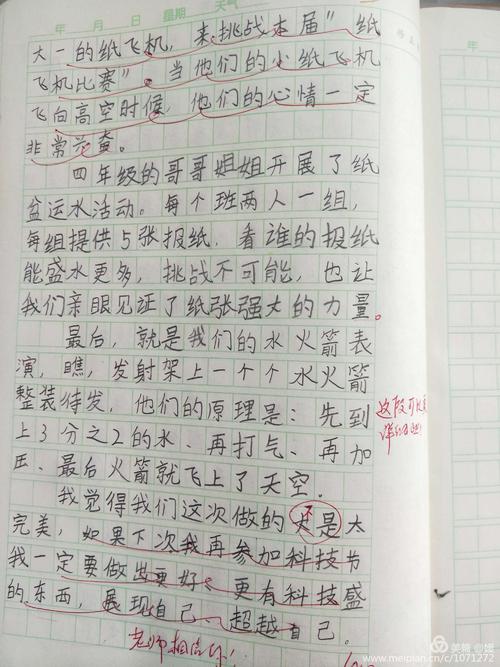 年 月 日 星期 天气
年
大一的纸飞机，来挑战本届"纸
飞机比赛"。当他们的小纸飞机
飞向高空时候，他们的心情一定
非常兴奋。
四年级的哥哥姐姐开展了纸
盆运水活动。每个班两人一组，
每组提供5张报纸，看谁的报纸
能盛水更多，挑战不可能，也让
我们亲眼见证了纸张强大的力量。
最后，就是我们的水火箭表
演，瞧，发射架上一个个水火箭
整装待发，他们的原理是：先到
上3分之2的水、再打气、再加
压、最后火箭就飞上了天空.
我觉得我们这次做的不是太
完美，如果下次我再参加科技节
我一定要做出更好、更有科技盛
的东西，展现自己、超越自己.
这段可以
老师相信你！
美篇 @媛
www.meipian.cn/c/1071272